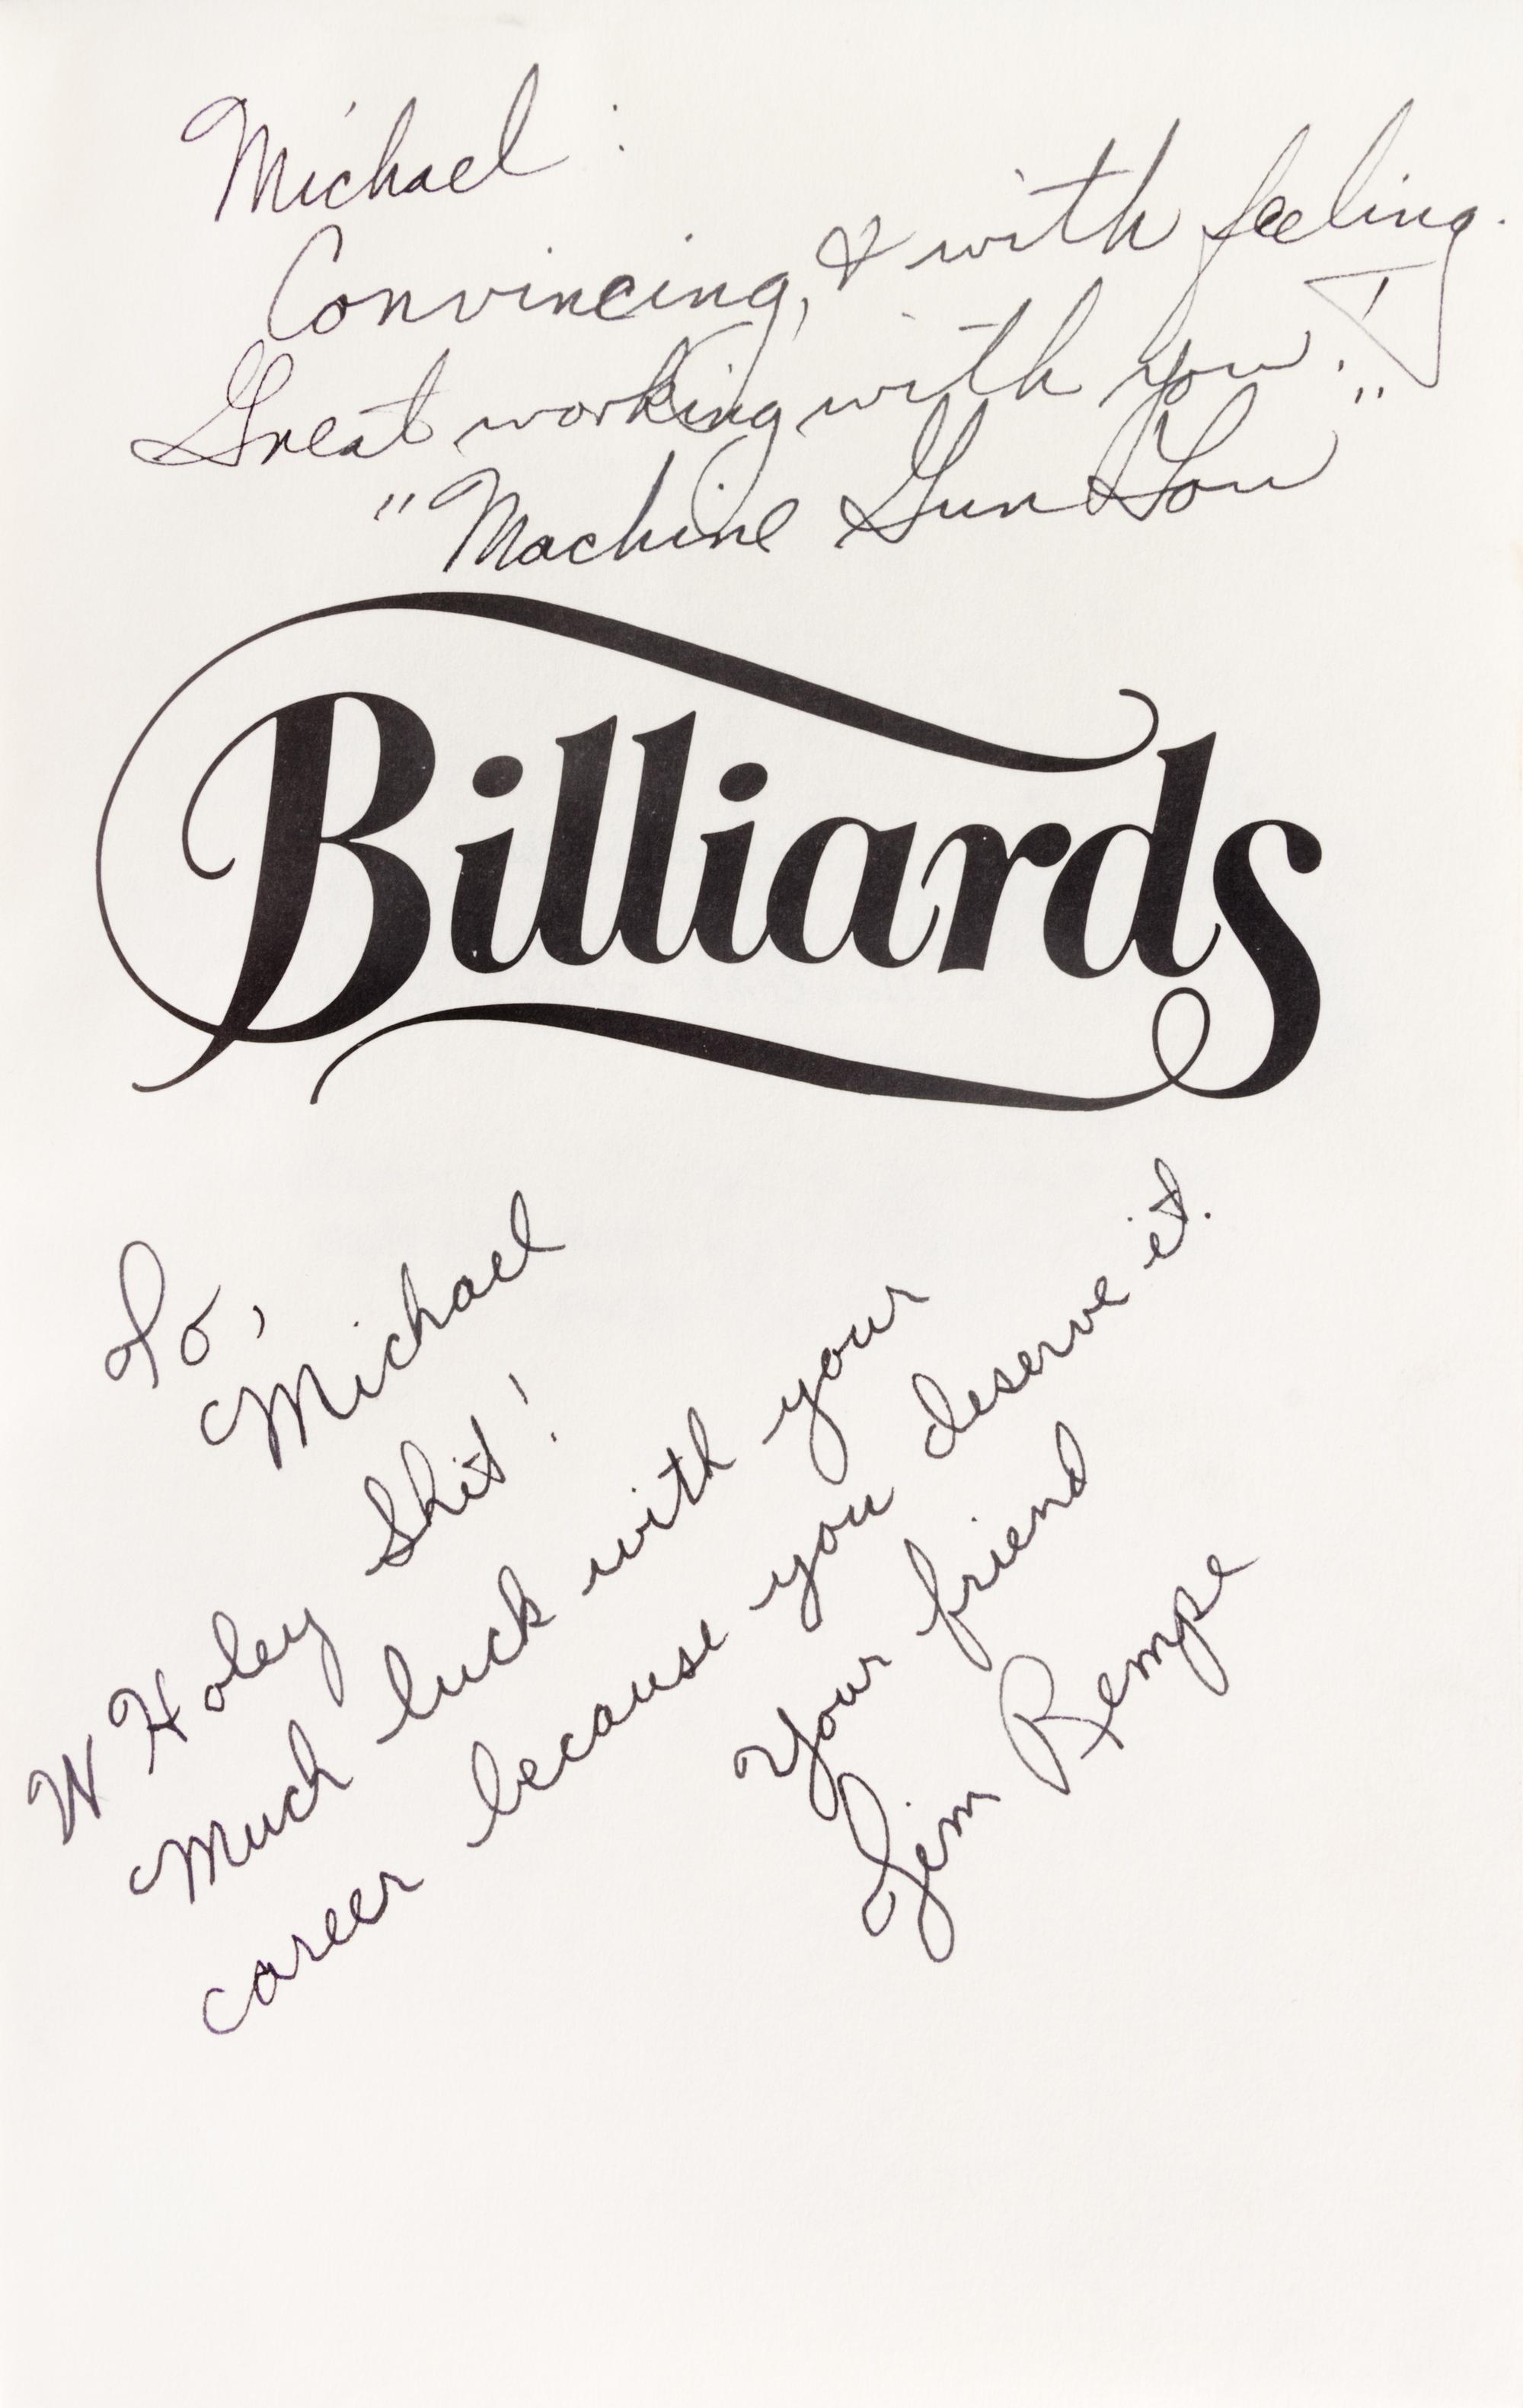 Michael :
Convincing, & with feeling.
Great working with you!
"Machine Gun Lou"
Billiards
To,
Michael
W Holey Shit!
Much luck with your
career because you deserve it.
Your friend
Jim Rempe